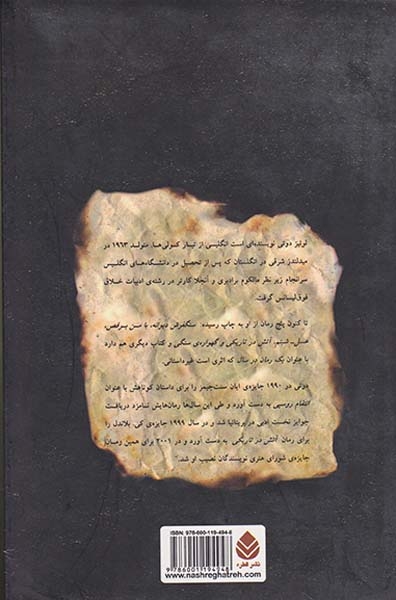 لوئیز دوتی نویسنده‌ای است انگلیسی از تبار کولی‌ها. متولد ۱۹۶۳ در
میدلندز شرقی در انگلستان که پس از تحصیل در دانشگاه‌های انگلیس
سرانجام زیر نظر مالکوم برادبری و آنجلا کارتر در رشته‌ی ادبیات خلاق
فوق‌لیسانس گرفت.
تا کنون پنج رمان از او به چاپ رسیده: سنگفرش دیوانه، با من برقص،
عسل-شبنم، آتش در تاریکی و گهواره‌ی سنگی و کتاب دیگری هم دارد
با عنوان یک رمان در سال که اثری است غیرداستانی.
دوتی در ۱۹۹۰ جایزه‌ی ایان سنت‌جیمز را برای داستان کوتاهش با عنوان
انتقام روسپی به دست آورد و طی این سال‌ها رمان‌هایش نامزد دریافت
جوایز نخست ادبی در بریتانیا شد و در سال ۱۹۹۹ جایزه‌ی کی. بلاندل را
برای رمان آتش در تاریکی به دست آورد و در ۲۰۰۱ برای همین رمان
جایزه‌ی شورای هنری نویسندگان نصیب او شد.
ISBN: 978-600-119-494-8
9 786001 194948
نشر قطره
www.nashreghatreh.com